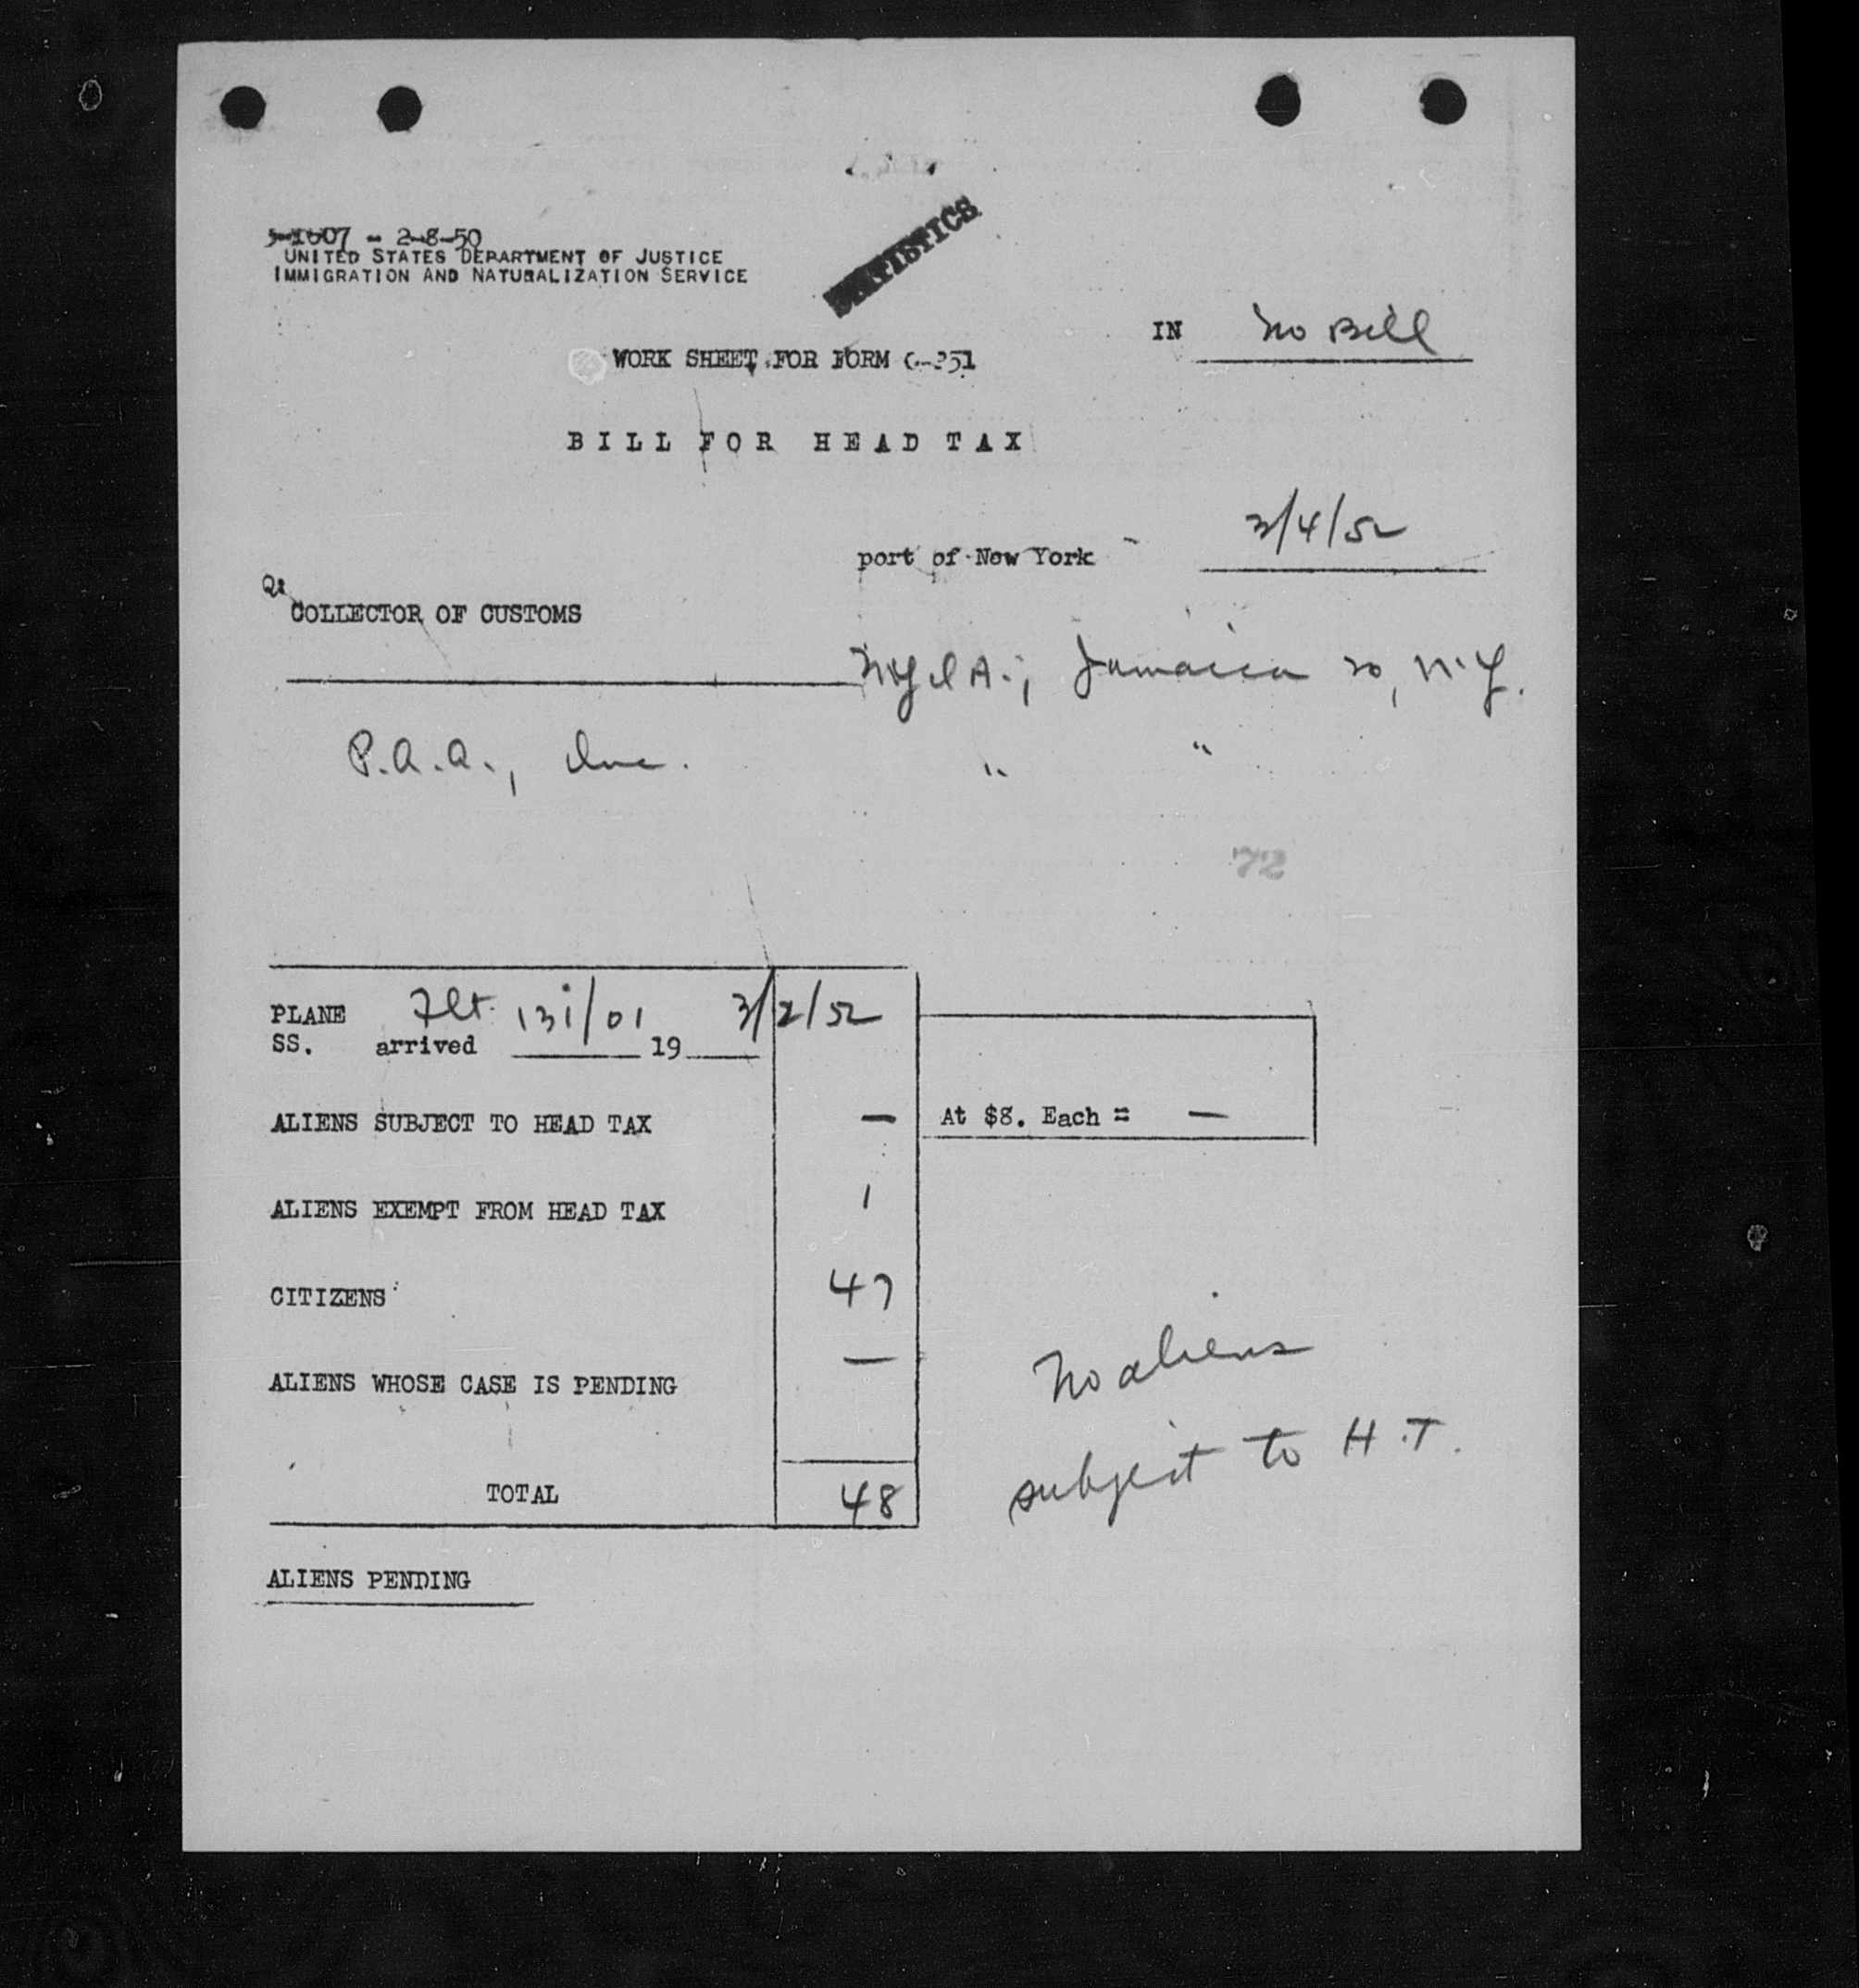 -1607 - 2-8-50
UNITED STATES DEPARTMENT OF JUSTICE
IMMIGRATION AND NATURALIZATION SERVICE
STATISTICS
IN No Bill
WORK SHEET FOR FORM G-351
BILL FOR HEAD TAX
port of New York 3/4/52
COLLECTOR OF CUSTOMS
NYIA.; Jamaica 20, N.Y.
P.A.A., Inc. " "
72
PLANE Flt. 131/01 3/2/52
SS. arrived 19
ALIENS SUBJECT TO HEAD TAX — At $8. Each = —
ALIENS EXEMPT FROM HEAD TAX 1
CITIZENS 47
ALIENS WHOSE CASE IS PENDING —
No aliens
subject to H.T.
TOTAL 48
ALIENS PENDING